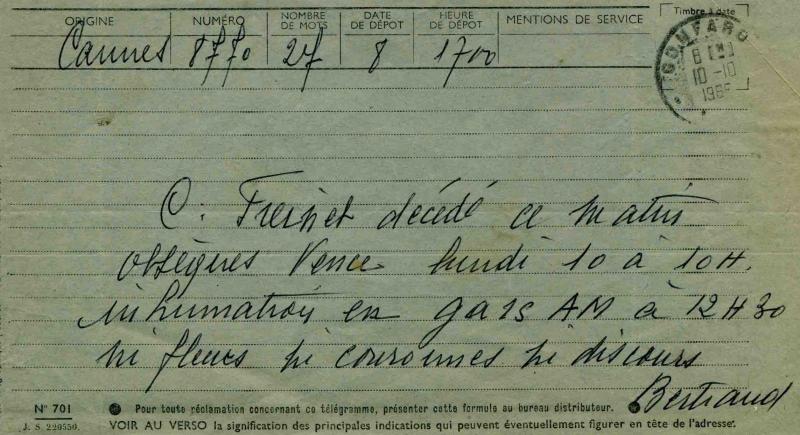 ORIGINE NUMÉRO NOMBRE DE MOTS DATE DE DÉPOT HEURE DE DÉPOT MENTIONS DE SERVICE Timbre à date
Cannes 27 8 1700
GONFARO
10-10
C. Freinet décédé ce matin
obsèques Vence lundi 10 à 10H.
inhumation en gars AM à 12H30
ni fleurs ni couronnes ni discours
Bertrand
N° 701 Pour toute réclamation concernant ce télégramme, présenter cette formule au bureau distributeur.
J. S. 220550. VOIR AU VERSO la signification des principales indications qui peuvent éventuellement figurer en tête de l'adresse.